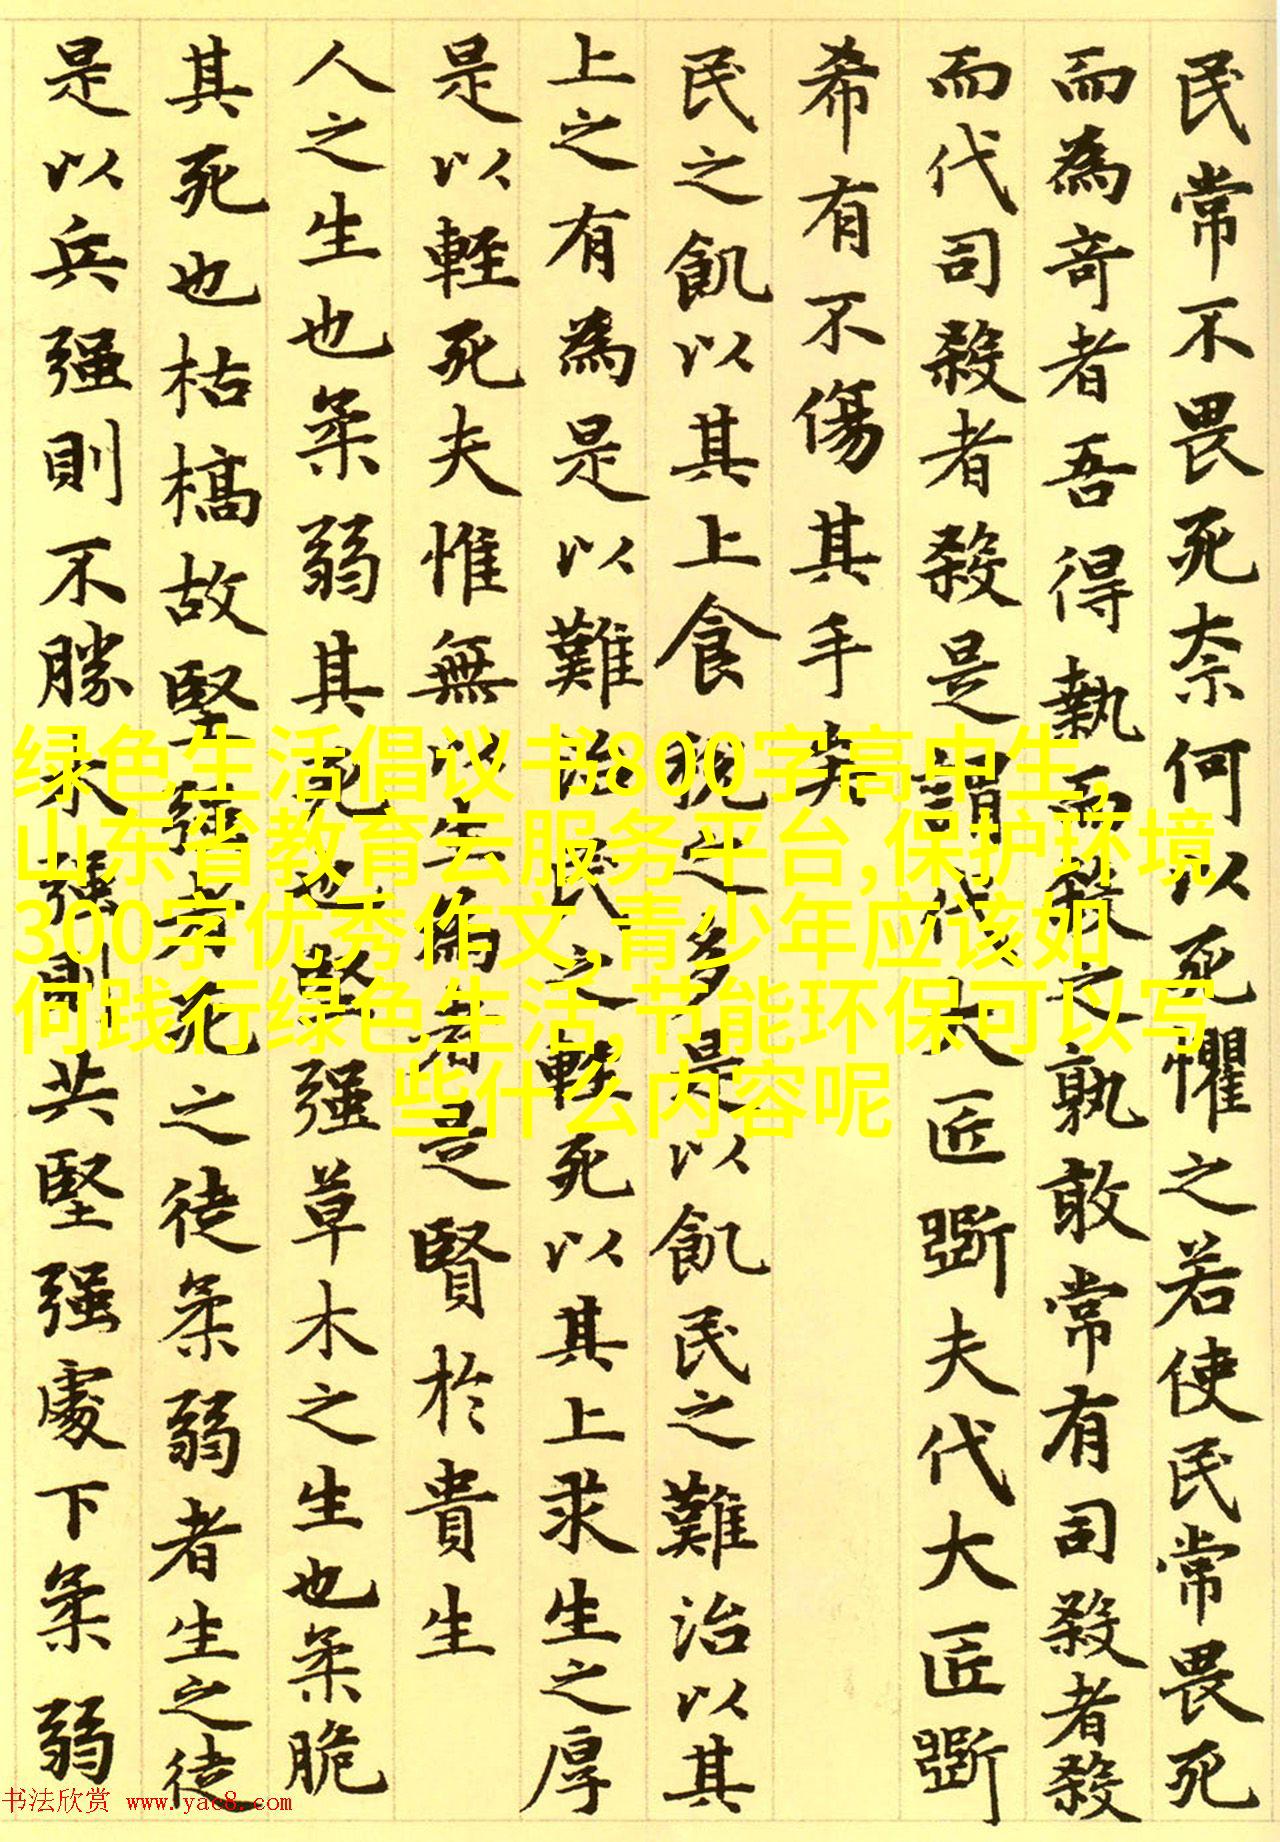 民常不畏死柰何以死懼之若使民常畏死
而為奇者吾得執而殺之孰敢常有司殺者殺
而代司殺者殺是謂代大匠斲夫代大匠斲
希有不傷其手矣
民之飢以其上食税之多是以飢民之難治以其
上之有為是以難治民之輕死以其上求生之厚
是以輕死夫惟無以生為者是賢於貴生
人之生也柔弱其死也堅强草木之生也柔脆
其死也枯槁故堅强者死之徒柔弱者生之徒
是以兵强則不勝木强則共堅强處下柔弱
绿色生活倡议书800字高中生,
山东省教育云服务平台,保护环境
300字优秀作文,青少年应该如
何践行绿色生活,节能环保可以写
些什么内容呢
书法欣赏 www.yac8.com